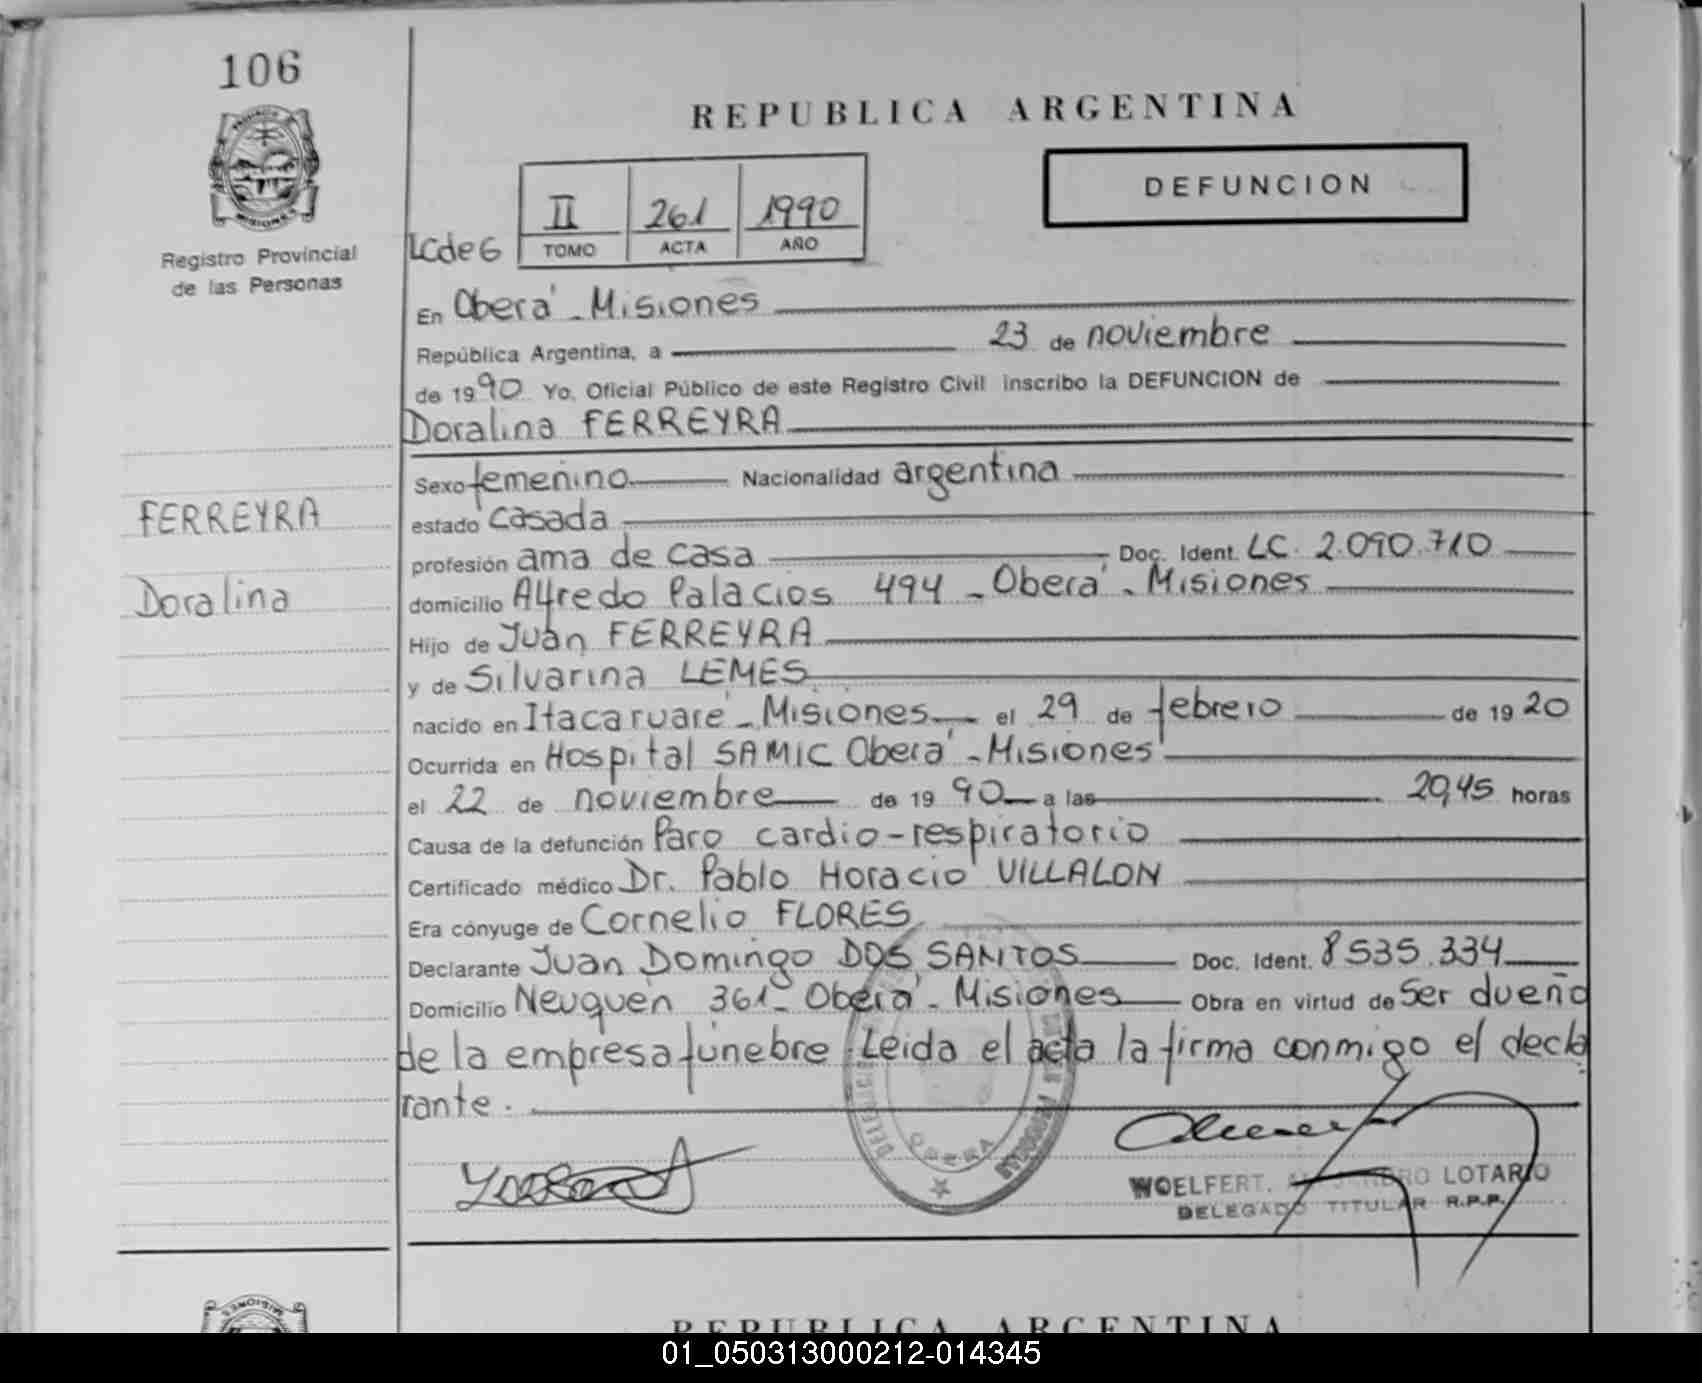 106
PROVINCIA
MISIONES
Registro Provincial
de las Personas
REPUBLICA ARGENTINA
DEFUNCION
II 261 1990
TOMO ACTA AÑO
LCde6
En Oberá - Misiones
República Argentina, a 23 de noviembre
de 1990 Yo, Oficial Público de este Registro Civil inscribo la DEFUNCION de
Doralina FERREYRA
Sexo femenino Nacionalidad argentina
estado casada
profesión ama de casa Doc. Ident. LC. 2.090.710
domicilio Alfredo Palacios 494 - Oberá - Misiones
Hijo de Juan FERREYRA
y de Silvarina LEMES
nacido en Itacaruaré - Misiones el 29 de febrero de 1920
Ocurrida en Hospital SAMIC Oberá - Misiones
el 22 de noviembre de 1990 a las 20,45 horas
Causa de la defunción Paro cardio-respiratorio
Certificado médico Dr. Pablo Horacio VILLALON
Era cónyuge de Cornelio FLORES
Declarante Juan Domingo DOS SANTOS Doc. Ident. 8535.334
Domicilio Neuquén 361 - Oberá - Misiones Obra en virtud de ser dueño
de la empresa fúnebre. Leida el acta la firma conmigo el decla
rante.
FERREYRA
Doralina
OBERA
WOELFERT, LOTARIO
DELEGADO TITULAR R.P.P.
MISIONES
REPUBLICA ARGENTINA
01_050313000212-014345